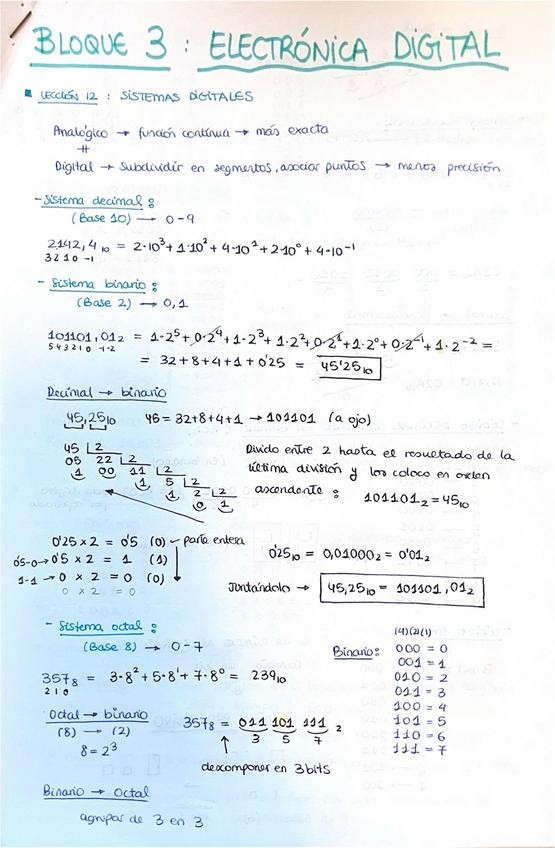 BLOQUE 3 : ELECTRÓNICA DIGITAL
LECCIÓN 12 : SISTEMAS DIGITALES
Analógico → función continua → más exacta
≠
Digital → Subdividir en segmentos, asociar puntos → menos precisión
- Sistema decimal :
(Base 10) → 0-9
2142,4₁₀ = 2·10³ + 1·10² + 4·10¹ + 2·10⁰ + 4·10⁻¹
3 2 1 0 -1
- Sistema binario :
(Base 2) → 0,1
101101,01₂ = 1·2⁵ + 0·2⁴ + 1·2³ + 1·2² + 0·2¹ + 1·2⁰ + 0·2⁻¹ + 1·2⁻² =
5 4 3 2 1 0 -1 -2
= 32 + 8 + 4 + 1 + 0'25 = 45'25₁₀
Decimal → binario
45,25₁₀ 45 = 32+8+4+1 → 101101 (a ojo)
45 2
05 22 2
1 00 11 2
1 5 2
1 2 2
0 1
Divido entre 2 hasta el resultado de la
última división y los coloco en orden
ascendente : 101101₂ = 45₁₀
0'25 x 2 = 0'5 (0) ← parte entera
0'5-0 → 0'5 x 2 = 1 (1)
1-1 → 0 x 2 = 0 (0)
0 x 2 = 0
0'25₁₀ = 0,01000₂ = 0'01₂
Juntándolo → 45,25₁₀ = 101101,01₂
- Sistema octal :
(Base 8) → 0-7
357₈ = 3·8² + 5·8¹ + 7·8⁰ = 239₁₀
2 1 0
Binario: (4)(2)(1)
000 = 0
001 = 1
010 = 2
011 = 3
100 = 4
101 = 5
110 = 6
111 = 7
Octal → binario
(8) → (2)
8 = 2³
357₈ = 011 101 111 ₂
3 5 7
↑
descomponer en 3 bits
Binario → Octal
agrupar de 3 en 3